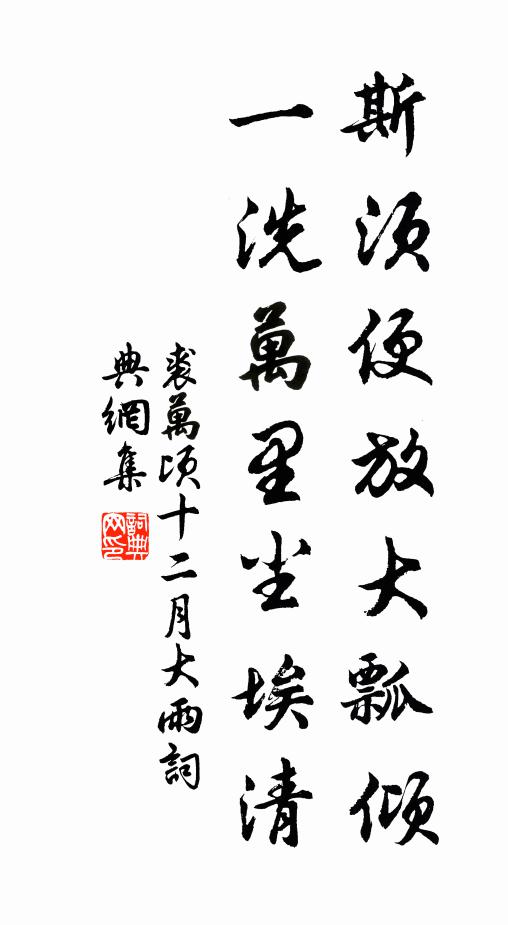 斯須便放大瓢傾
一洗萬里尘埃清
裘萬頃十二月大雨詞
典網集
詞典
网印